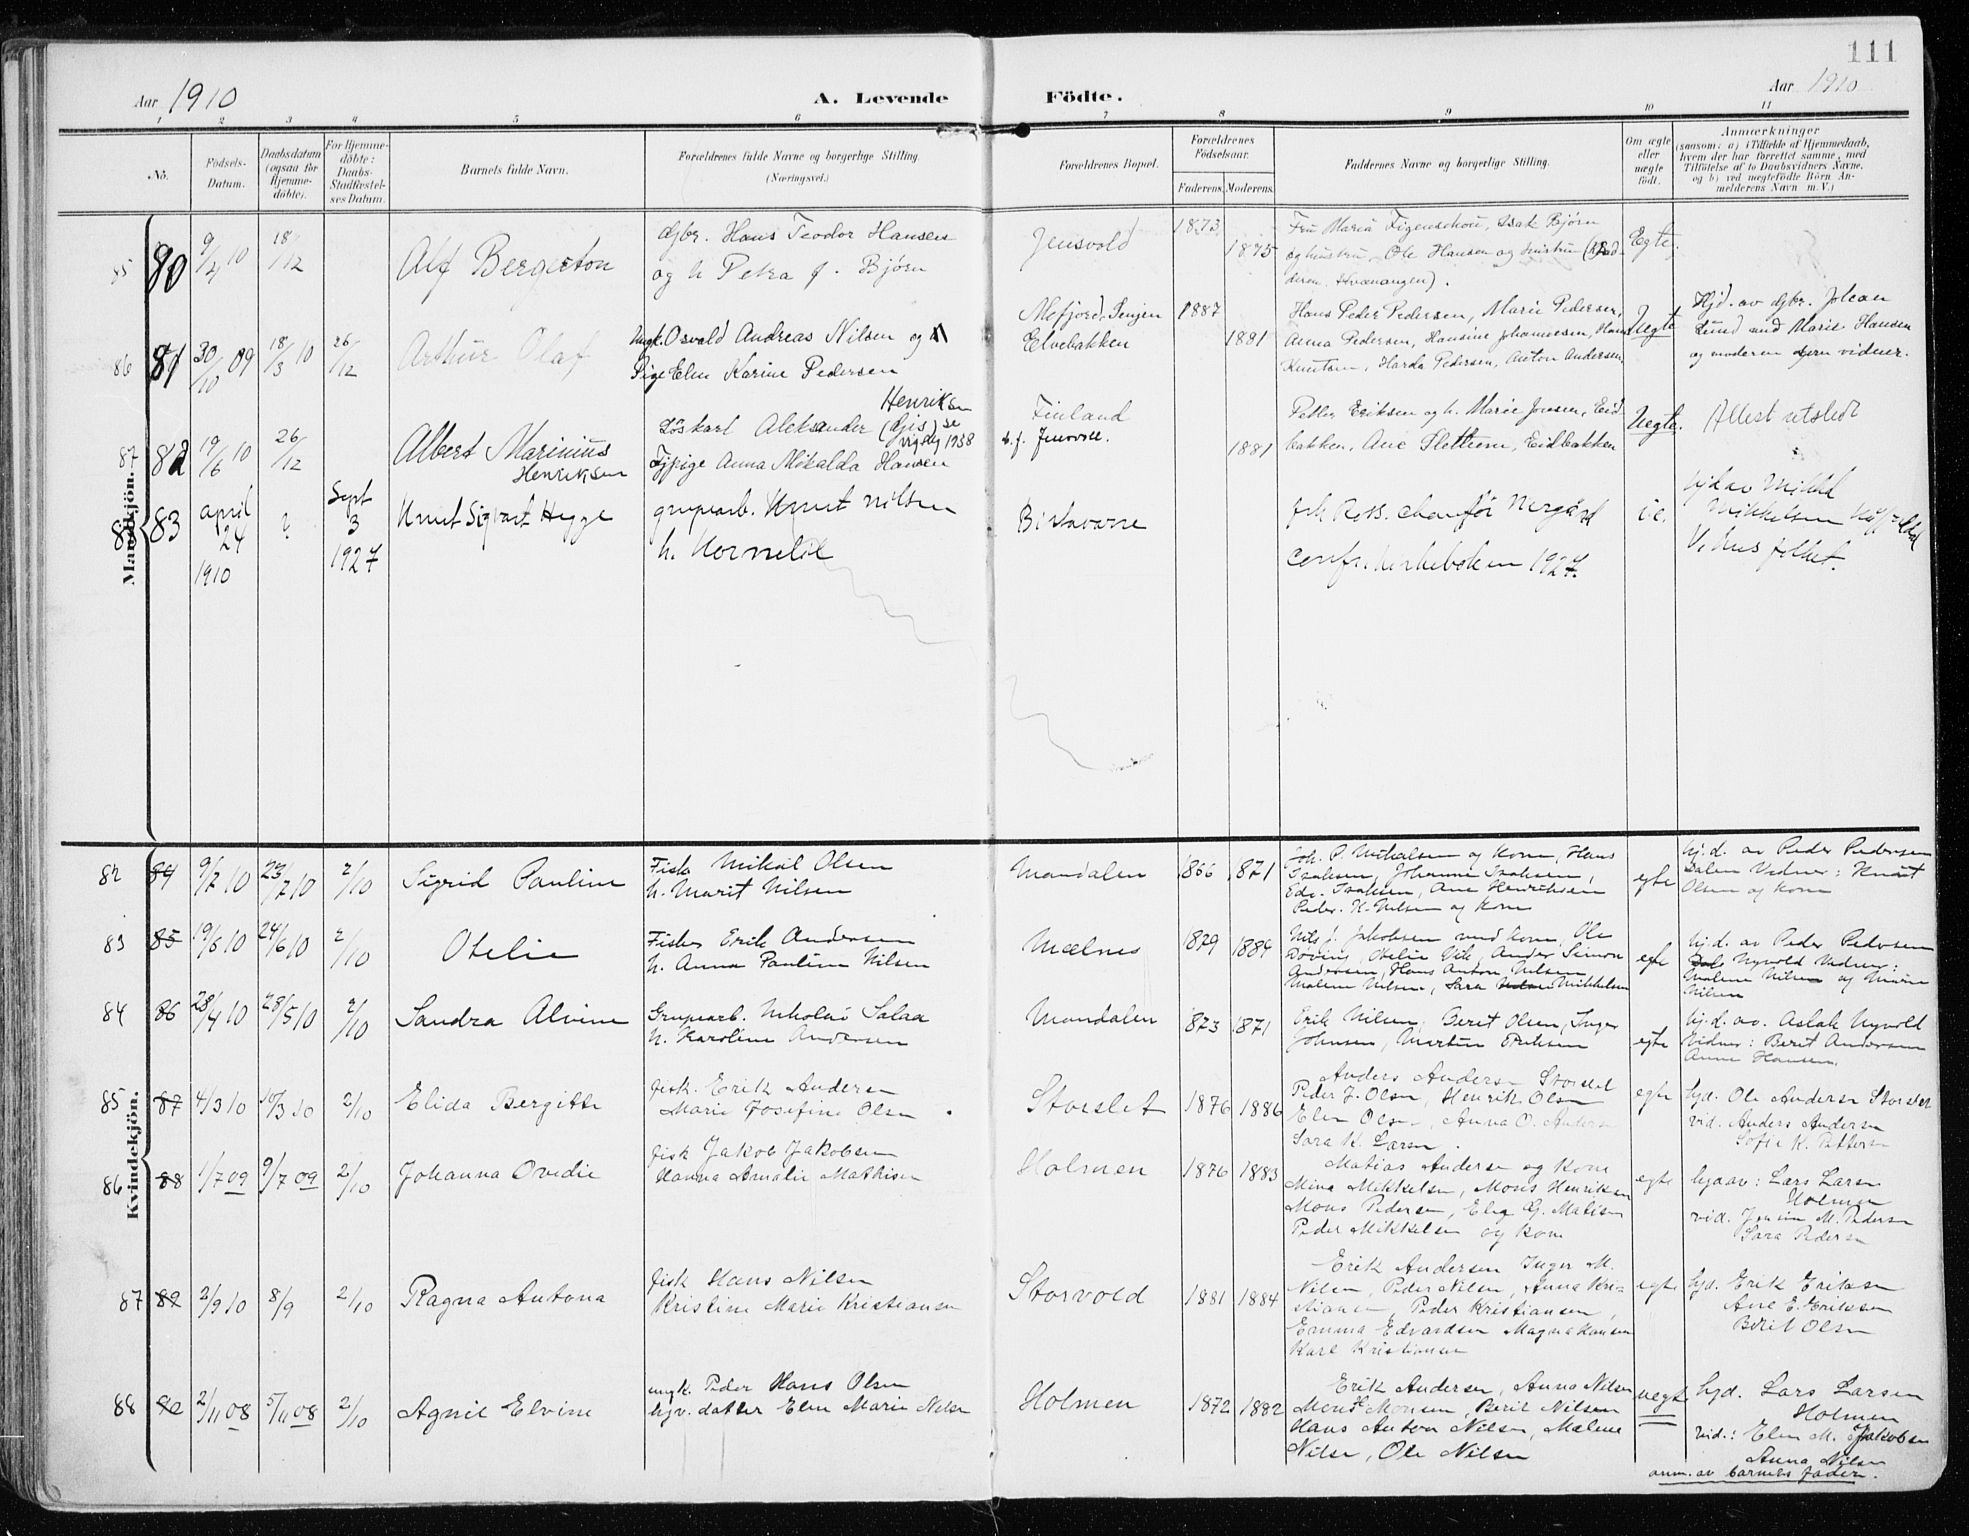 111
Aar 1910
A. Levende Födte.
Aar 1910
1 2 3 4 5 6 7 8 9 10 11
No.
Födsels-Datum.
Daabsdatum (ogsaa for Hjemmedöbte).
For Hjemmedöbte: Daabs-Stadfæstelses Datum.
Barnets fulde Navn.
Forældrenes fulde Navne og borgerlige Stilling.
(Næringsvei.)
Forældrenes Bopæl.
Forældrenes Födselsaar.
Faderens. Moderens.
Faddernes Navne og borgerlige Stilling.
Om ægte eller uægte födt.
Anmærkninger
(saasom: a) i Tilfælde af Hjemmedaab,
hvem der har forrettet samme, med
Tilföielse af to Daabsvidners Navne.
og b) ved uægtefödte Börn An-
melderens Navn m. V.)
Mandkjön.
85 80 9/4 10 18/12 Alf Bergeton
gbr. Hans Teodor Hansen
og h Petra f. Bjørn
Jensvold 1873 1875
Fru Maria Figenschou, Isak Bjørn
og hustru, Ole Hansen og hustru
Egte.
86 81 30/10 09 18/3 10 26/12 Arthur Olaf
Ungk. Osvald Andreas Nilsen og
Pige Elen Karine Pedersen
Mefjord Senjen
Elvebakken
1887 1881
Hans Peder Pedersen, Marie Pedersen,
Anna Pedersen, Hansine Johannesen, Hans
Knutsen, Harda Pedersen, Anton Andersen
Uegte
Hjd. av gbr. Johan
Lund med Marie Hansen
og moderen som vidner.
87 82 19/6 10 26/12 Albert Marinius
Henriksen
Henriksen
Løskarl Aleksander
Tjpige Anna Mikalda Hansen
Finland
1881
Petter Eriksen og h. Marie Jensen, Eid-
bakken, Ane Slettum, Eidbakken
Uegte.
Attest utstedt
83 april 24 1910 ? Sept 3 1927
Knut Sigvart Hegge
grupearb. Knut Nilsen
h. Kornelie
Birtavarre
confr. kirkeboken 1927.
hjd av Mikkel
Mikkelsen
Kvindekjön.
82 84 9/2 10 23/7 10 2/10 Sigrid Pauline
Fisk. Mikal Olsen
h. Marit Nilsen
Mandalen 1866 1871
Joh. P. Mikalsen og kone, Hans
Isaksen, Johanne Isaksen,
Edv. Isaksen, Ane Henriksen
Peder. H. Nilsen og kone
egte
hj.d. av Peder Pedersen
Dalen Vidner: Knut
Olsen og kone
83 85 19/5 10 24/6 10 2/10 Otelie
Fisker Erik Andersen
h. Anna Pauline Nilsen
Mælnes 1879 1884
Nils J. Jakobsen med kone, Ole
Andersen, Hans Anton Nilsen
Malene Nilsen, Sara Mikkelsen
egte
hj.d. av Peder Pedersen
Nyvold Vidner:
Malene Nilsen og Marie
Nilsen
84 86 28/4 10 28/5 10 2/10 Sandra Alvine
Grupearb. Nikolai Salaa
h. Karoline Andersen
Mandalen 1873 1871
Erik Nilsen, Beret Olsen, Inger
Johnsen, Martin Eriksen
egte
hj.d. av. Aslak Nyvold
Vidner: Beret Andersen
Anne Hansen
85 87 4/3 10 10/3 10 2/10 Elida Bergitte
fisk. Erik Andersen
Marie Josefine Olsen
Storslet 1876 1886
Anders Andersen Storslet
Peder J. Olsen, Henrik Olsen
Elen Olsen, Anna O. Andersen
Sara K. Larsen.
egte
hjd. Ole Andersen Storslet
vid. Anders Andersen
Sofie K. Pettersen
86 88 1/7 09 9/7 09 2/10 Johanna Ovidie
fisk Jakob Jakobsen
Hanna Amalie Mathisen
Holmen 1876 1883
Matias Andersen og kone
Mina Mikkelsen, Mons Henriksen
Mons Pedersen, Eleg G. Matisen
Peder Mikkelsen og kone
egte
hjd av: Lars Larsen
Holmen
vid. Jensine M. Pedersen
Sara Pedersen
87 89 2/9 10 8/9 2/10 Ragna Antona
fisk Hans Nilsen
Kristine Marie Kristiansen
Storvold 1881 1884
Erik Andersen Inger M.
Nilsen, Peder Nilsen, Anna Kri-
stiansen, Peder Kristiansen,
Emma Edvardsen Magna Hansen
Karl Kristiansen
egte
hjd. Erik Eriksen
Ane E. Eriksen
Berit Olsen
88 90 2/11 08 5/11 08 2/10 Agnie Elvine
ungk. Peder Hans Olsen
hgv. datter Elen Marie Nilsen
Holmen 1872 1882
Erik Andersen, Anna Nilsen
Mons Monsen, Berit Nilsen
Hans Anton Nilsen, Malene
Nilsen, Ole Nilsen
uegte
hjd. Lars Larsen
Holmen
vid.: Elen M. Jakobsen
Anna Nilsen
anm. av barnets fader.